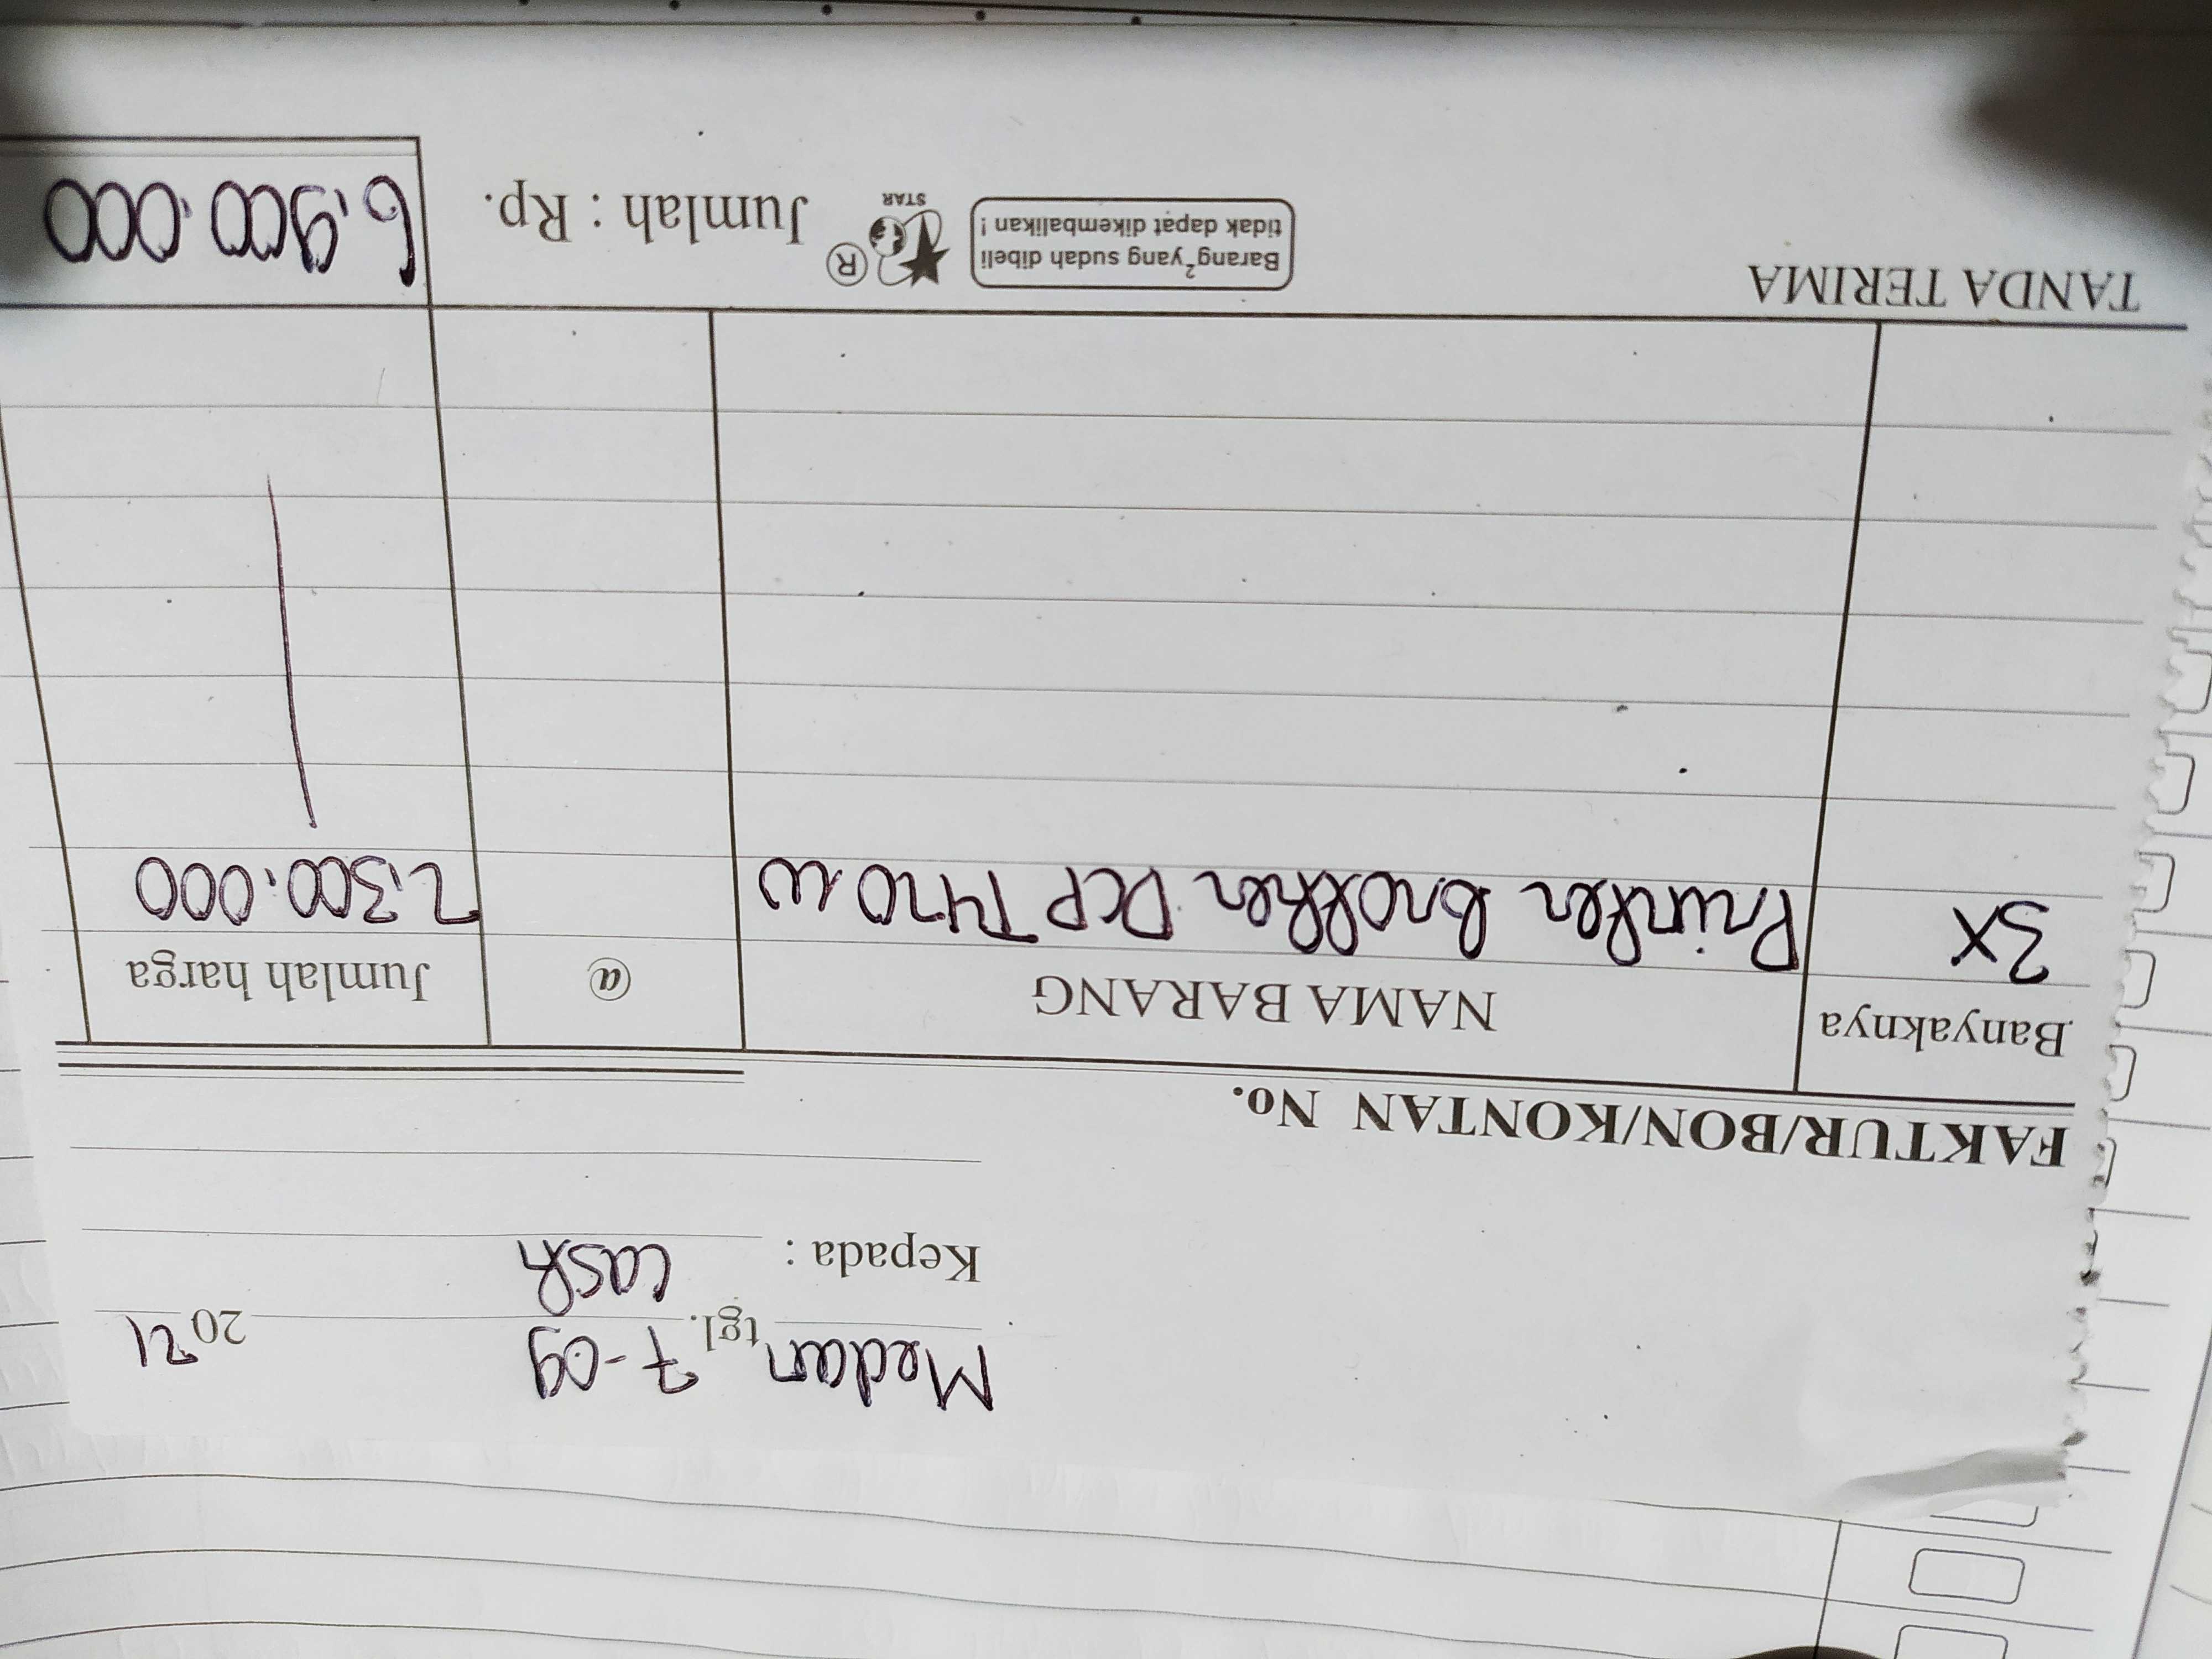 Medan, tgl. 7-09 2021
Kepada : Cash
FAKTUR/BON/KONTAN No.
Banyaknya NAMA BARANG @ Jumlah harga
3x Printer Brother DCP T420 W 2.300.000
TANDA TERIMA
Barang² yang sudah dibeli
tidak dapat dikembalikan !
R
STAR
Jumlah : Rp. 6.900.000